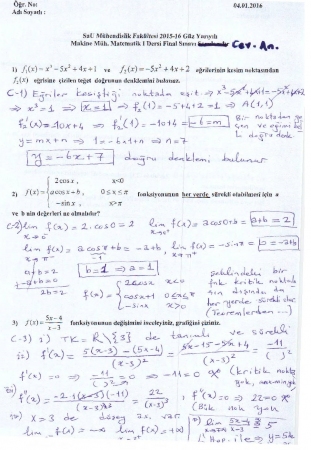 Öğr. No: 04.01.2016
Adı Soyadı :
SaÜ Mühendislik Fakültesi 2015-16 Güz Yarıyılı
Makine Müh. Matematik I Dersi Final Sınavı Cev. An.
1) f₁(x) = x³ - 5x² + 4x + 1 ve f₂(x) = -5x² + 4x + 2 eğrilerinin kesim noktasından
f₂(x) eğrisine çizilen teğet doğrunun denklemini bulunuz.
C-1) Eğriler kesiştiği noktada eşit → x³-5x²+4x+1=-5x²+4x+2
⇒ x³=1 ⇒ x=1 ⇒ f₂(1) = -5+4+2=1 ⇒ A(1,1)
f₂'(x) = -10x+4 ⇒ f₂'(1) = -10+4 = -6 = m
y=mx+n ⇒ 1=-6x1+n ⇒ n=7
y=-6x+7 doğru denklemi bulunur
2) f(x) = { 2cosx, x<0
acosx+b, 0≤x≤π
-sinx, x>π
fonksiyonunun her yerde sürekli olabilmesi için a
ve b nin değerleri ne olmalıdır?
C-2) lim f(x) = 2.cos0 = 2 lim f(x) = acos0+b = a+b = 2
lim f(x) = acosπ+b = -a+b, lim f(x) = -sinπ = 0 = -a+b
a+b=2
-a+b=0
2b=2
b=1 ⇒ a=1
f(x) = { 2cosx x<0
cosx+1 0≤x≤π
-sinx x>π
şeklindeki bir
her yerde sürekli
(Teoremlerden...)
3) f(x) = (5x-4)/(x-3) fonksiyonunun değişimini inceleyiniz, grafiğini çiziniz.
C-3) i) TK = R\{3} de tanımlı ve sürekli
ii) f'(x) = (5(x-3)-(5x-4))/(x-3)² = (5x-15-5x+4)/(x-3)² = -11/( )²
f'(x)=0 ⇒ -11/( )²=0 ⇒ -11=0
iii) f''(x) = 22/(x-3)³, f''(x)=0 ⇒ 22=0
(Bük. nok. yok)
iv) x=3 de düşey as. var
lim f(x) = -∞ lim f(x) = +∞
L'Hop. ile ⇒ y=5